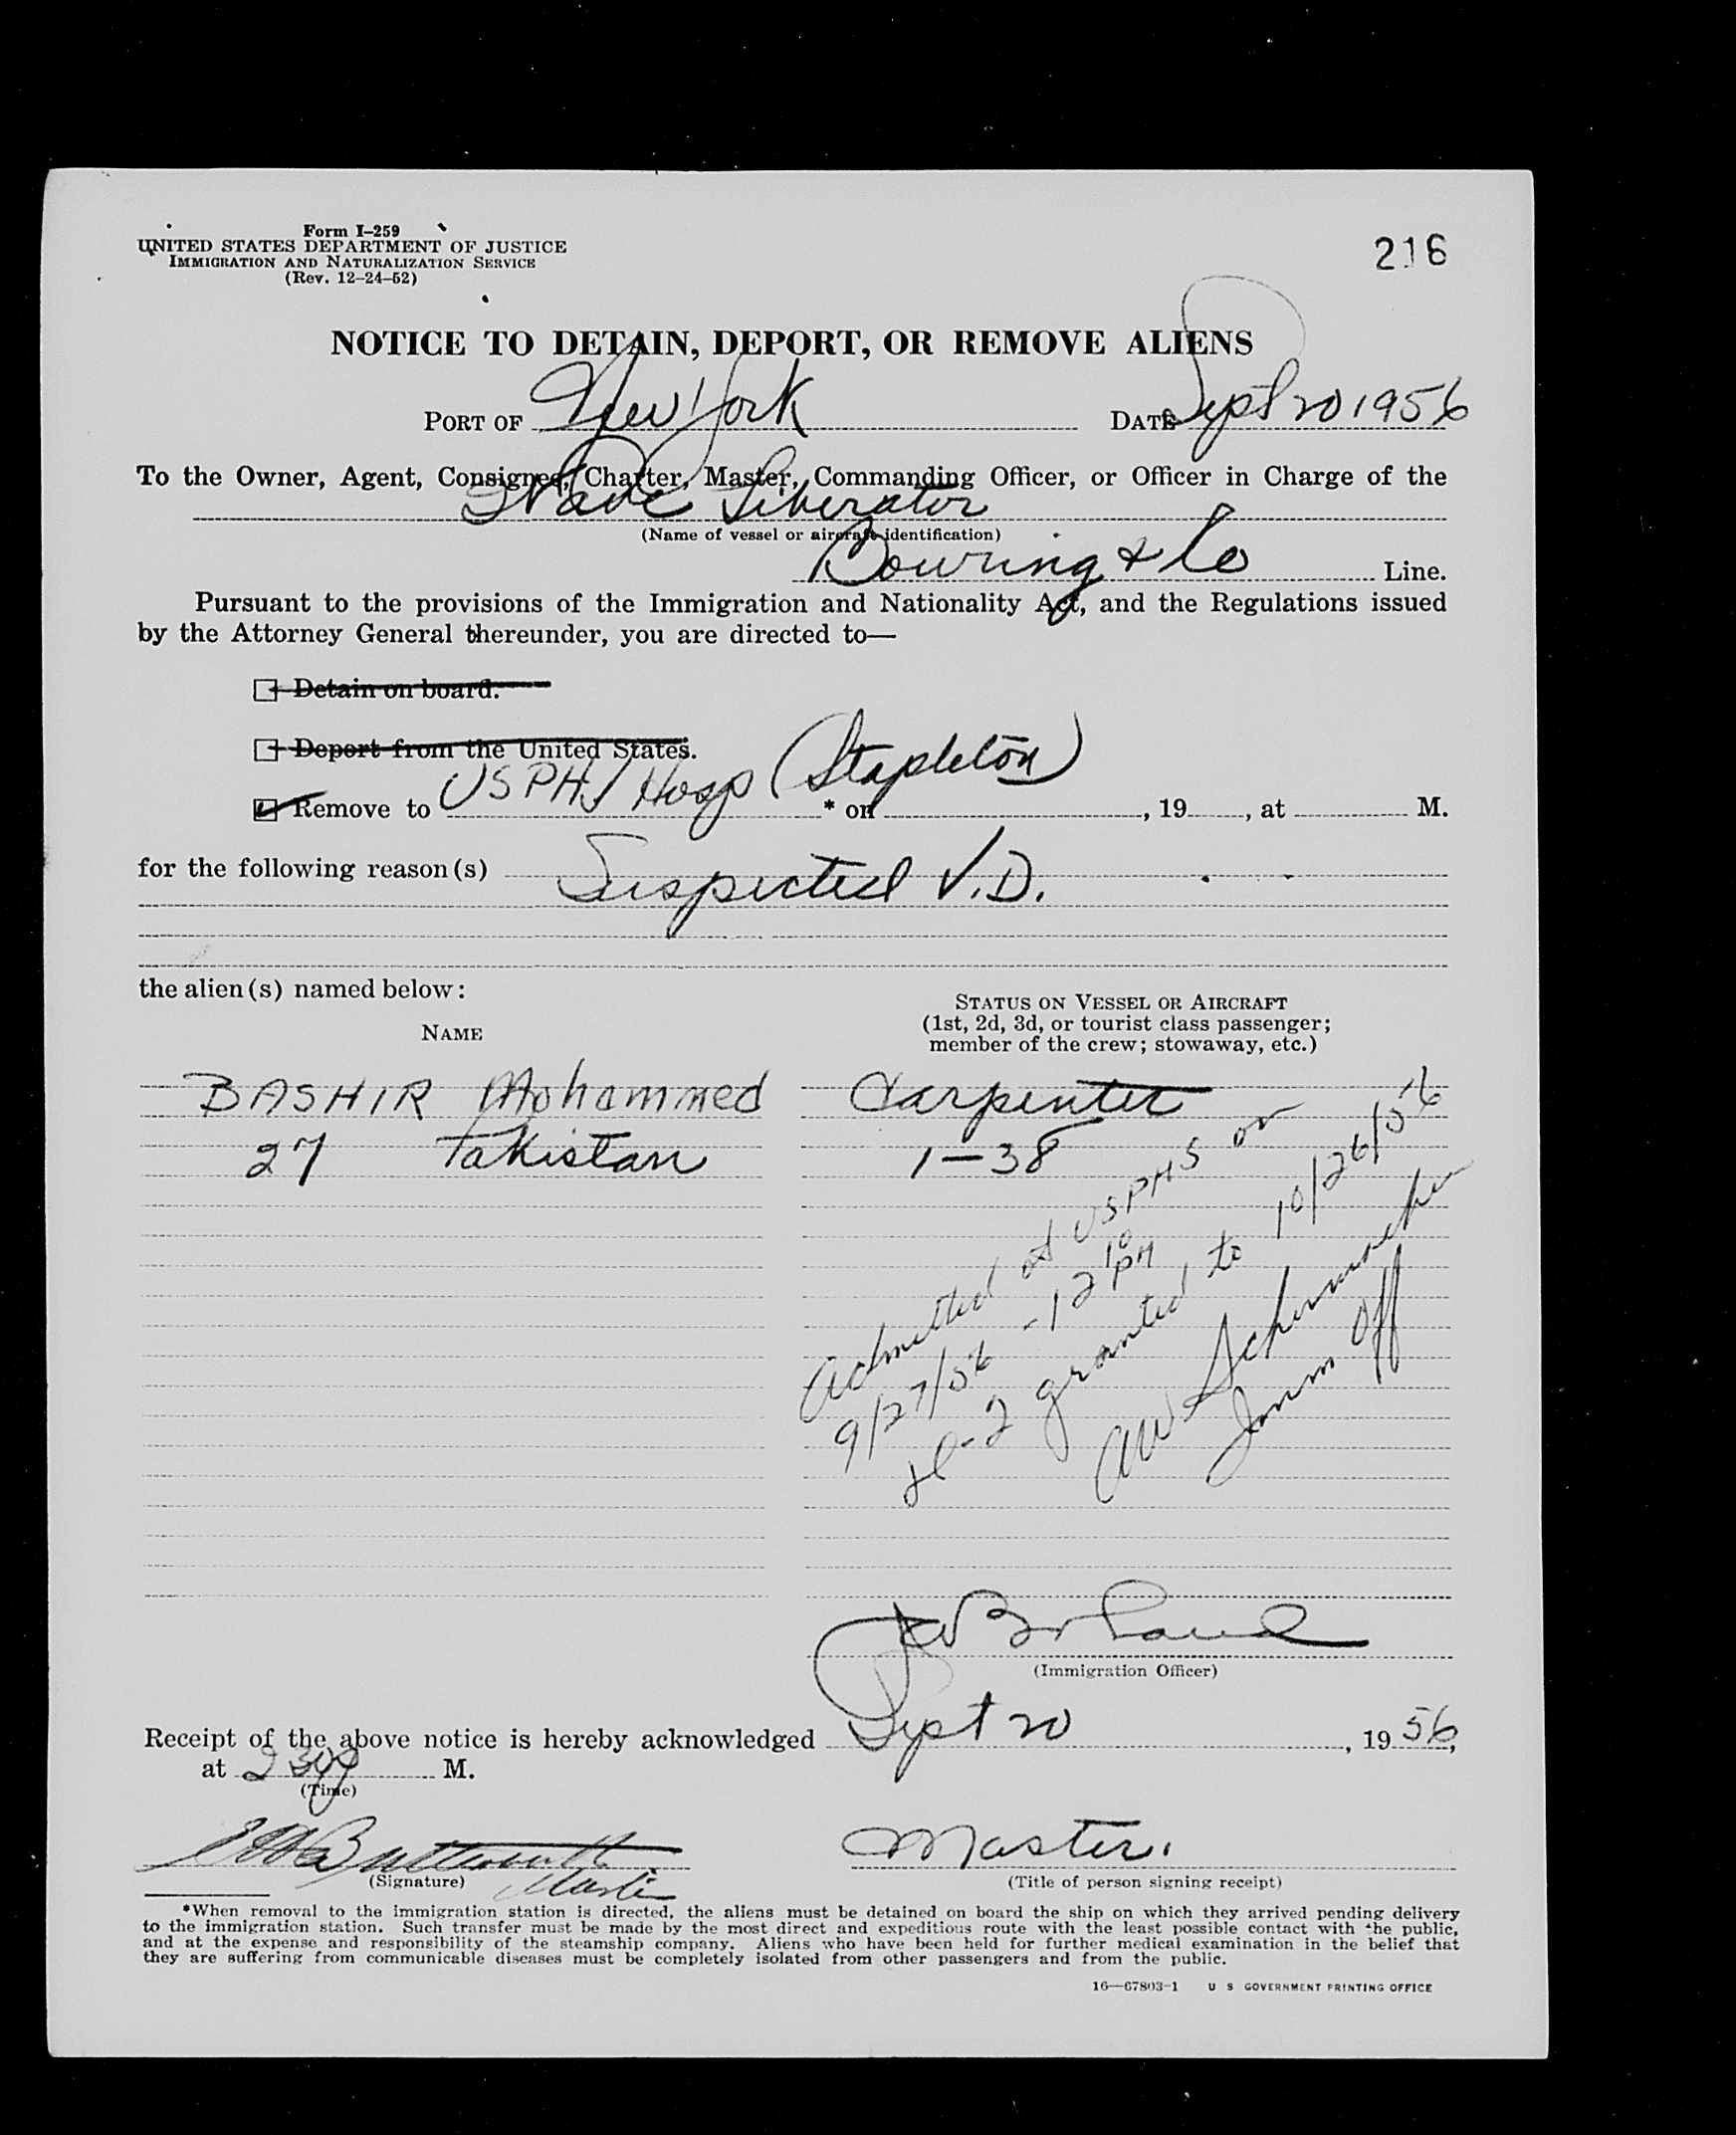 Form I–259
UNITED STATES DEPARTMENT OF JUSTICE
IMMIGRATION AND NATURALIZATION SERVICE
(Rev. 12–24–52)
216
NOTICE TO DETAIN, DEPORT, OR REMOVE ALIENS
PORT OF New York DATE Sept 20 1956
To the Owner, Agent, Consignee, Charter, Master, Commanding Officer, or Officer in Charge of the
Liberator
(Name of vessel or aircraft identification)
Bowring & Co Line.
Pursuant to the provisions of the Immigration and Nationality Act, and the Regulations issued
by the Attorney General thereunder, you are directed to—
Detain on board.
Deport from the United States.
Remove to USPHS Hosp (Stapleton) * on , 19 , at M.
for the following reason(s) Suspected V.D.
the alien(s) named below:
NAME
STATUS ON VESSEL OR AIRCRAFT
(1st, 2d, 3d, or tourist class passenger;
member of the crew; stowaway, etc.)
BASHIR Mohammed Carpenter
27 Pakistan 1–38
Admitted at USPHS on
9/27/56 - 12 10 PM
granted to 10/26/56
AW Schermacher
Imm Off
(Immigration Officer)
Receipt of the above notice is hereby acknowledged Sept 20, 1956,
at 2 30 P M.
(Time)
Butterworth
Master
(Signature)
Master.
(Title of person signing receipt)
*When removal to the immigration station is directed, the aliens must be detained on board the ship on which they arrived pending delivery
to the immigration station. Such transfer must be made by the most direct and expeditious route with the least possible contact with the public,
and at the expense and responsibility of the steamship company. Aliens who have been held for further medical examination in the belief that
they are suffering from communicable diseases must be completely isolated from other passengers and from the public.
16—67803-1 U S GOVERNMENT PRINTING OFFICE